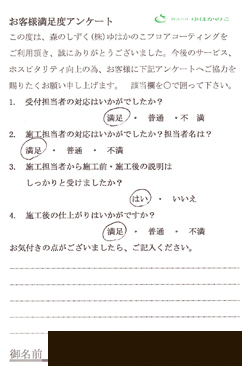 お客様満足度アンケート
この度は、森のしずく(株)ゆはかのこフロアコーティングを
ご利用頂き、誠にありがとうございました。今後のサービス、
ホスピタリティ向上の為、お客様に下記アンケートへご協力を
賜りたくお願い申し上げます。 該当欄を○で囲って下さい。
1. 受付担当者の対応はいかがでしたか?
満足 ・ 普通 ・不 満
2. 施工担当者の対応はいかがでしたか?担当者名は?
満足 ・ 普通 ・ 不満
3. 施工担当者から施工前・施工後の説明は
しっかりと受けましたか?
はい ・ いいえ
4. 施工後の仕上がりはいかがですか?
満足 ・ 普通 ・ 不満
お気付きの点がございましたら、ご記入ください。
御名前